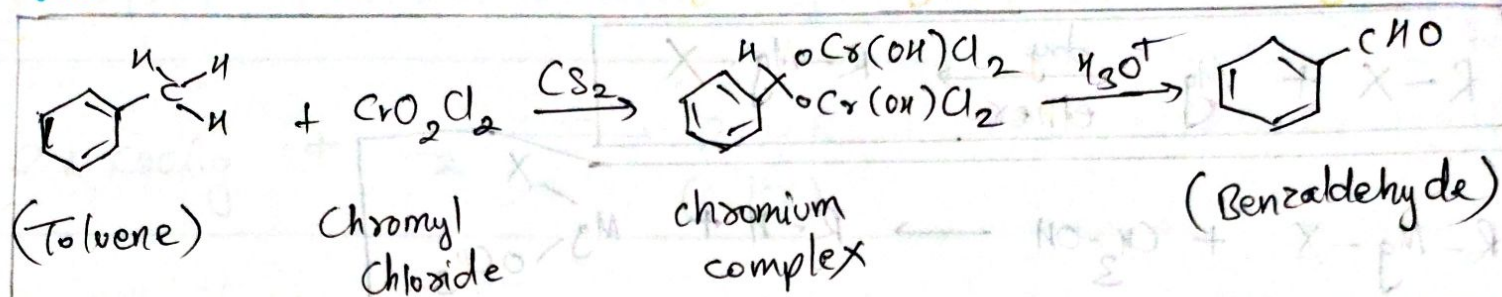 H H C H + CrO₂Cl₂ CS₂ → H OCr(OH)Cl₂ OCr(OH)Cl₂ H₃O⁺ → CHO
(Toluene) Chromyl Chloride chromium complex (Benzaldehyde)